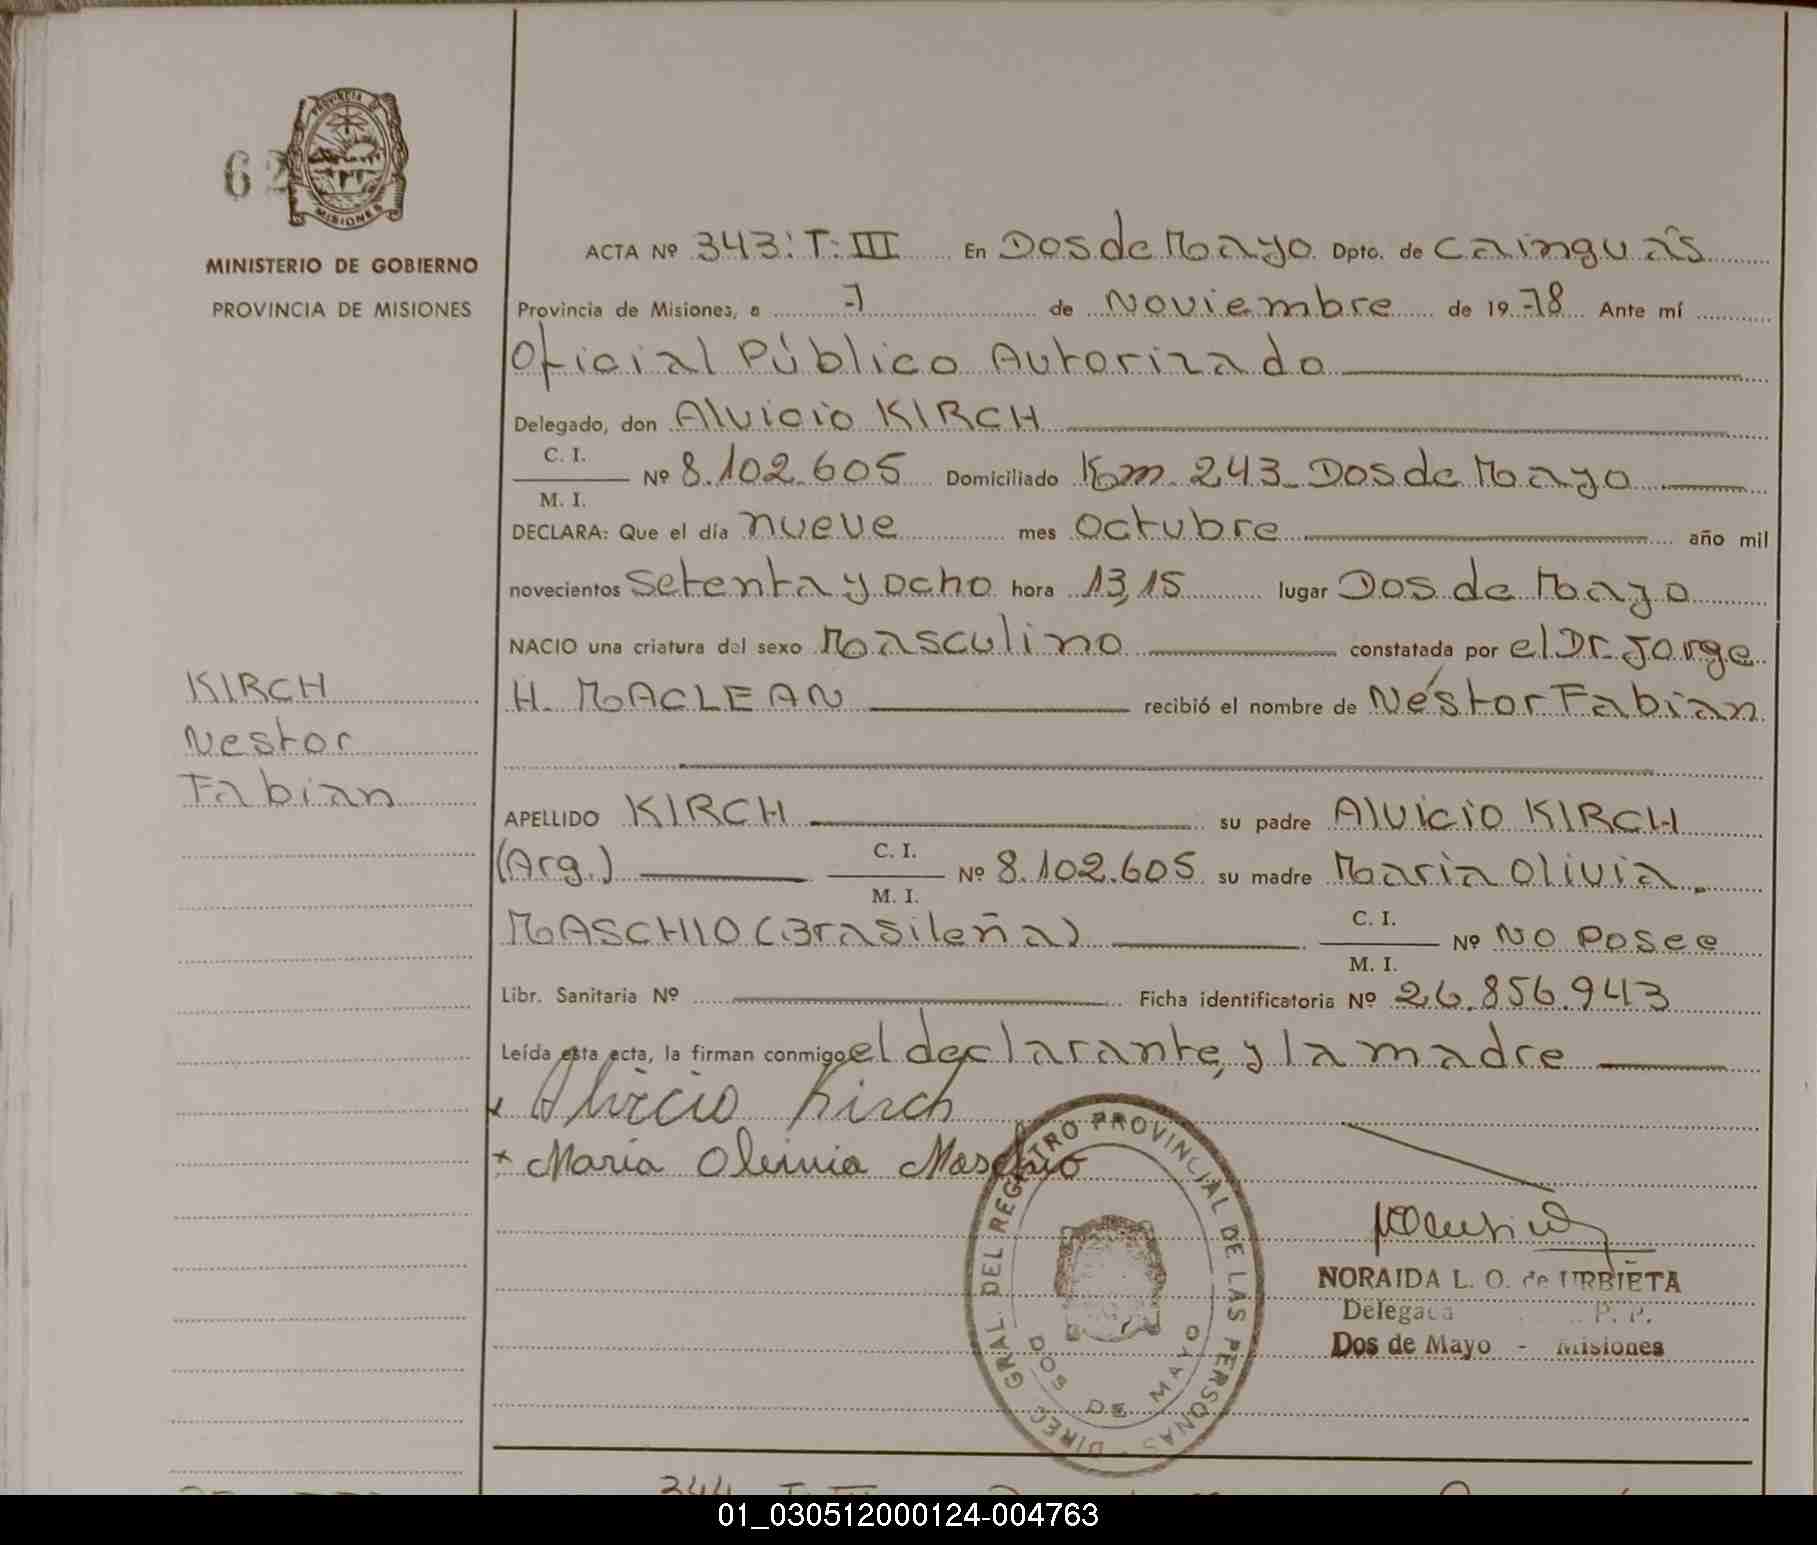 62
PROVINCIA DE
MISIONES
MINISTERIO DE GOBIERNO
PROVINCIA DE MISIONES
KIRCH
Nestor
Fabian
ACTA Nº 343: T: III En Dos de Mayo Dpto. de Cainguás
Provincia de Misiones, a 7 de Noviembre de 1978 Ante mí
Oficial Público Autorizado
Delegado, don Alvicio KIRCH
C. I.
Nº 8.102.605 Domiciliado Km 243 - Dos de Mayo
M. I.
DECLARA: Que el día nueve mes octubre año mil
novecientos setenta y ocho hora 13,15 lugar Dos de Mayo
NACIO una criatura del sexo Masculino constatada por el Dr. Jorge
H. MACLEAN recibió el nombre de Néstor Fabian
APELLIDO KIRCH su padre Alvicio KIRCH
(Arg.) C. I. Nº 8.102.605 su madre Maria Olivia
M. I.
MASCHIO (Brasileña) C. I. Nº NO Posee
M. I.
Libr. Sanitaria Nº Ficha identificatoria Nº 26.856.943
Leída esta acta, la firman conmigo el declarante, y la madre
x Alvicio Kirch
x Maria Olivia Maschio
DIREC. GRAL. DEL REGISTRO PROVINCIAL DE LAS PERSONAS
DOS DE MAYO
NORAIDA L. O. de URBIETA
Delegada P. P.
Dos de Mayo - Misiones
344
01_030512000124-004763